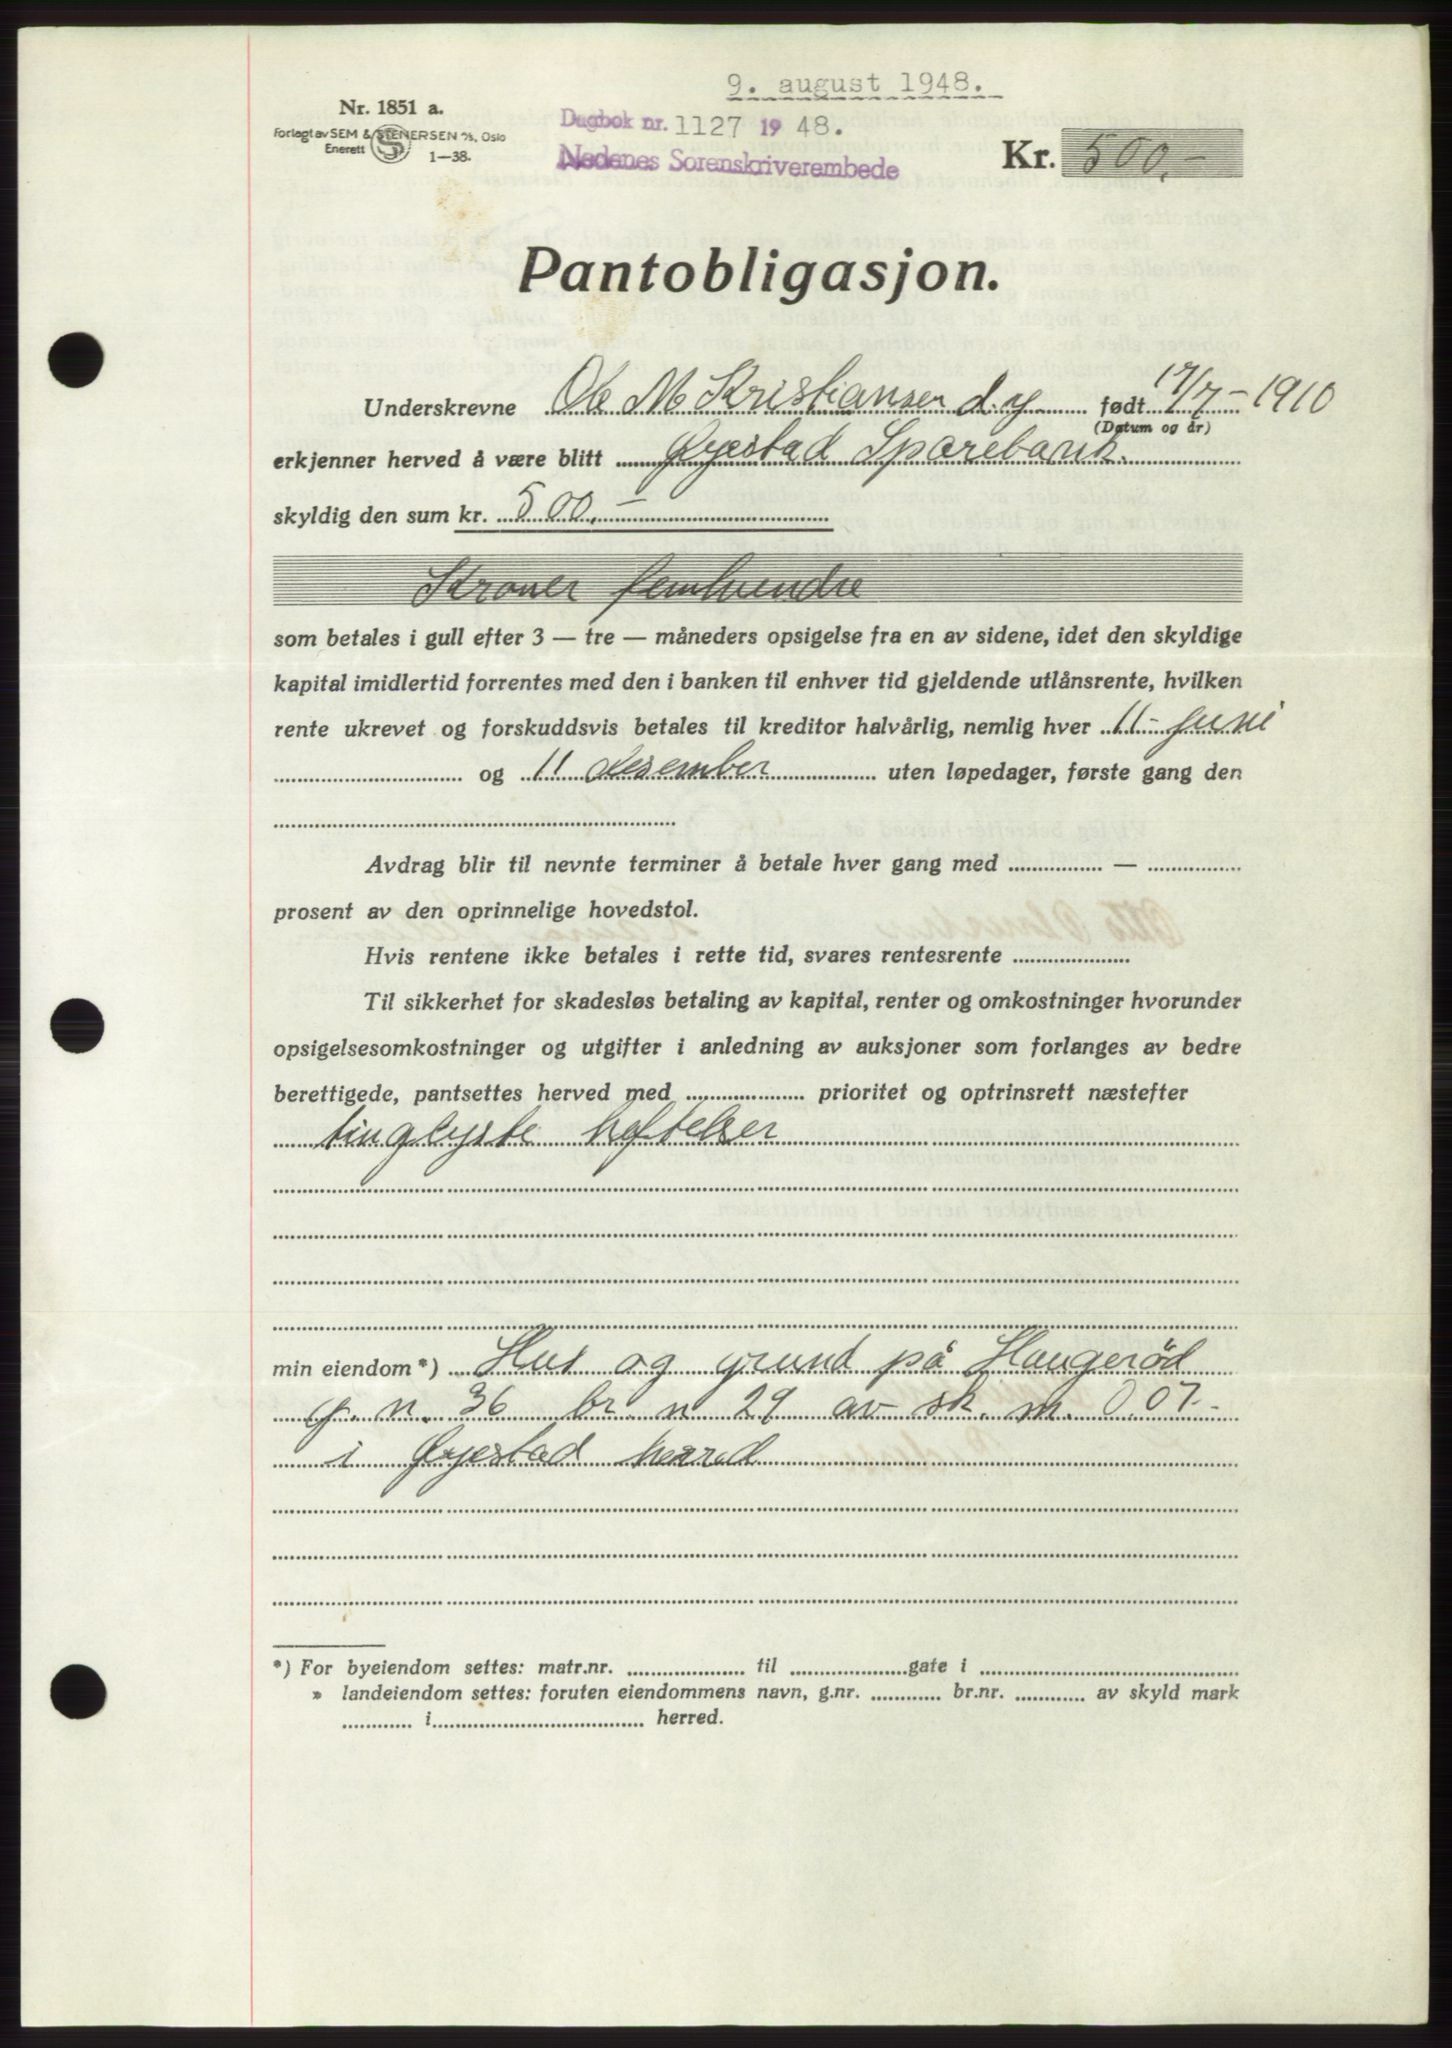 9. august 1948.
Nr. 1851 a.
Forlagt av SEM & STENERSEN A/S, Oslo
Enerett 1—38.
Dagbok nr. 1127 1948.
Nedenes Sorenskriverembede
Kr. 500,-
Pantobligasjon.
Underskrevne Ole M Kristiansen d.y. født 17/7 - 1910
(Datum og år)
erkjenner herved å være blitt Øyestad Sparebank.
skyldig den sum kr. 500,-
Kroner femhundre
som betales i gull efter 3 — tre — måneders opsigelse fra en av sidene, idet den skyldige
kapital imidlertid forrentes med den i banken til enhver tid gjeldende utlånsrente, hvilken
rente ukrevet og forskuddsvis betales til kreditor halvårlig, nemlig hver 11- juni
og 11 desember uten løpedager, første gang den
Avdrag blir til nevnte terminer å betale hver gang med — 
prosent av den oprinnelige hovedstol.
Hvis rentene ikke betales i rette tid, svares rentesrente
Til sikkerhet for skadesløs betaling av kapital, renter og omkostninger hvorunder
opsigelsesomkostninger og utgifter i anledning av auksjoner som forlanges av bedre
berettigede, pantsettes herved med prioritet og optrinsrett næstefter
tinglyste heftelser
min eiendom*) Hus og grund på Haugerød
g. n. 36 br. n 29 av sk. m. 0.07-
i Øyestad herred
*) For byeiendom settes: matr.nr. til gate i
» landeiendom settes: foruten eiendommens navn, g.nr. br.nr. av skyld mark
i herred.